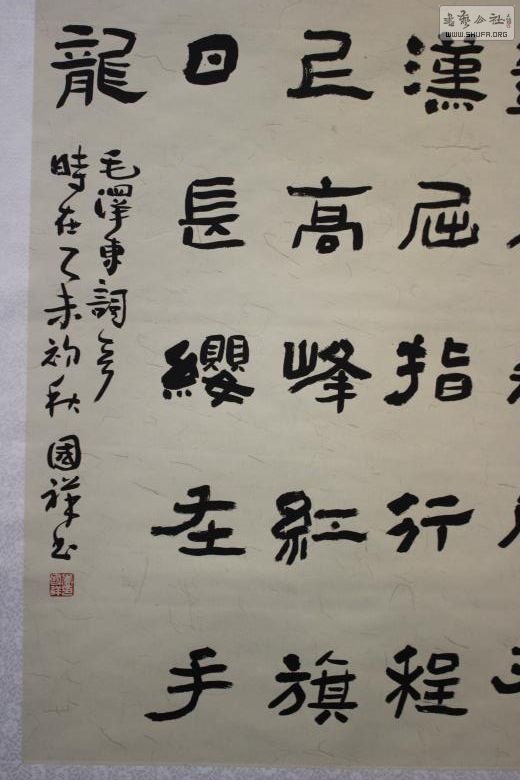 书艺公社
WWW.SHUFA.ORG
漢屈指行程
上高峰紅旗
日長纓在手
龍
毛澤東詞
時在乙未初秋 國祥书